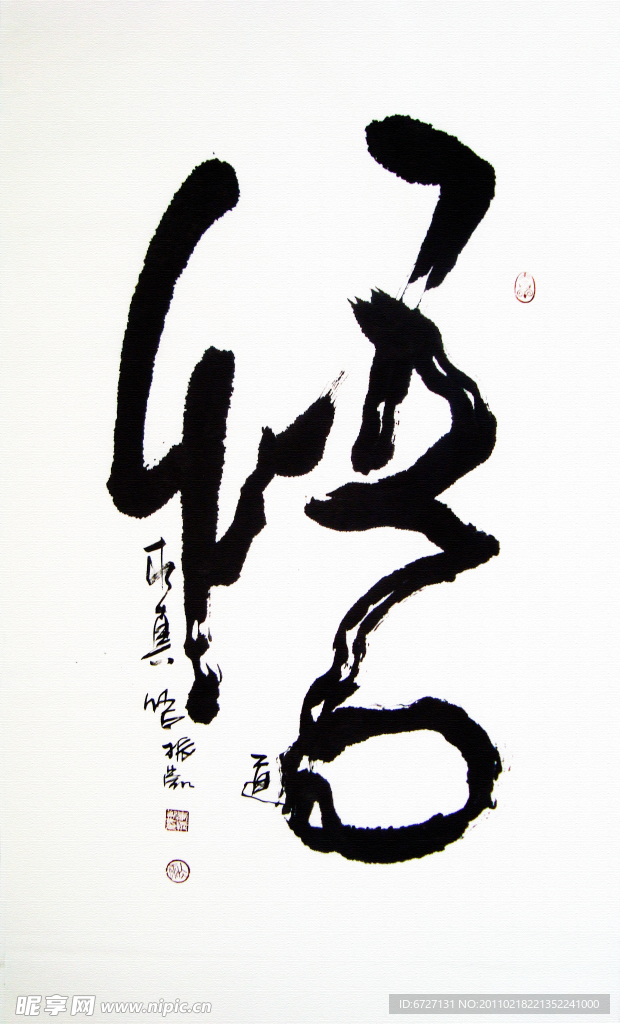 悟
道
求真 管振凯
昵享网 www.nipic.cn
ID:6727131 NO:20110218221352241000